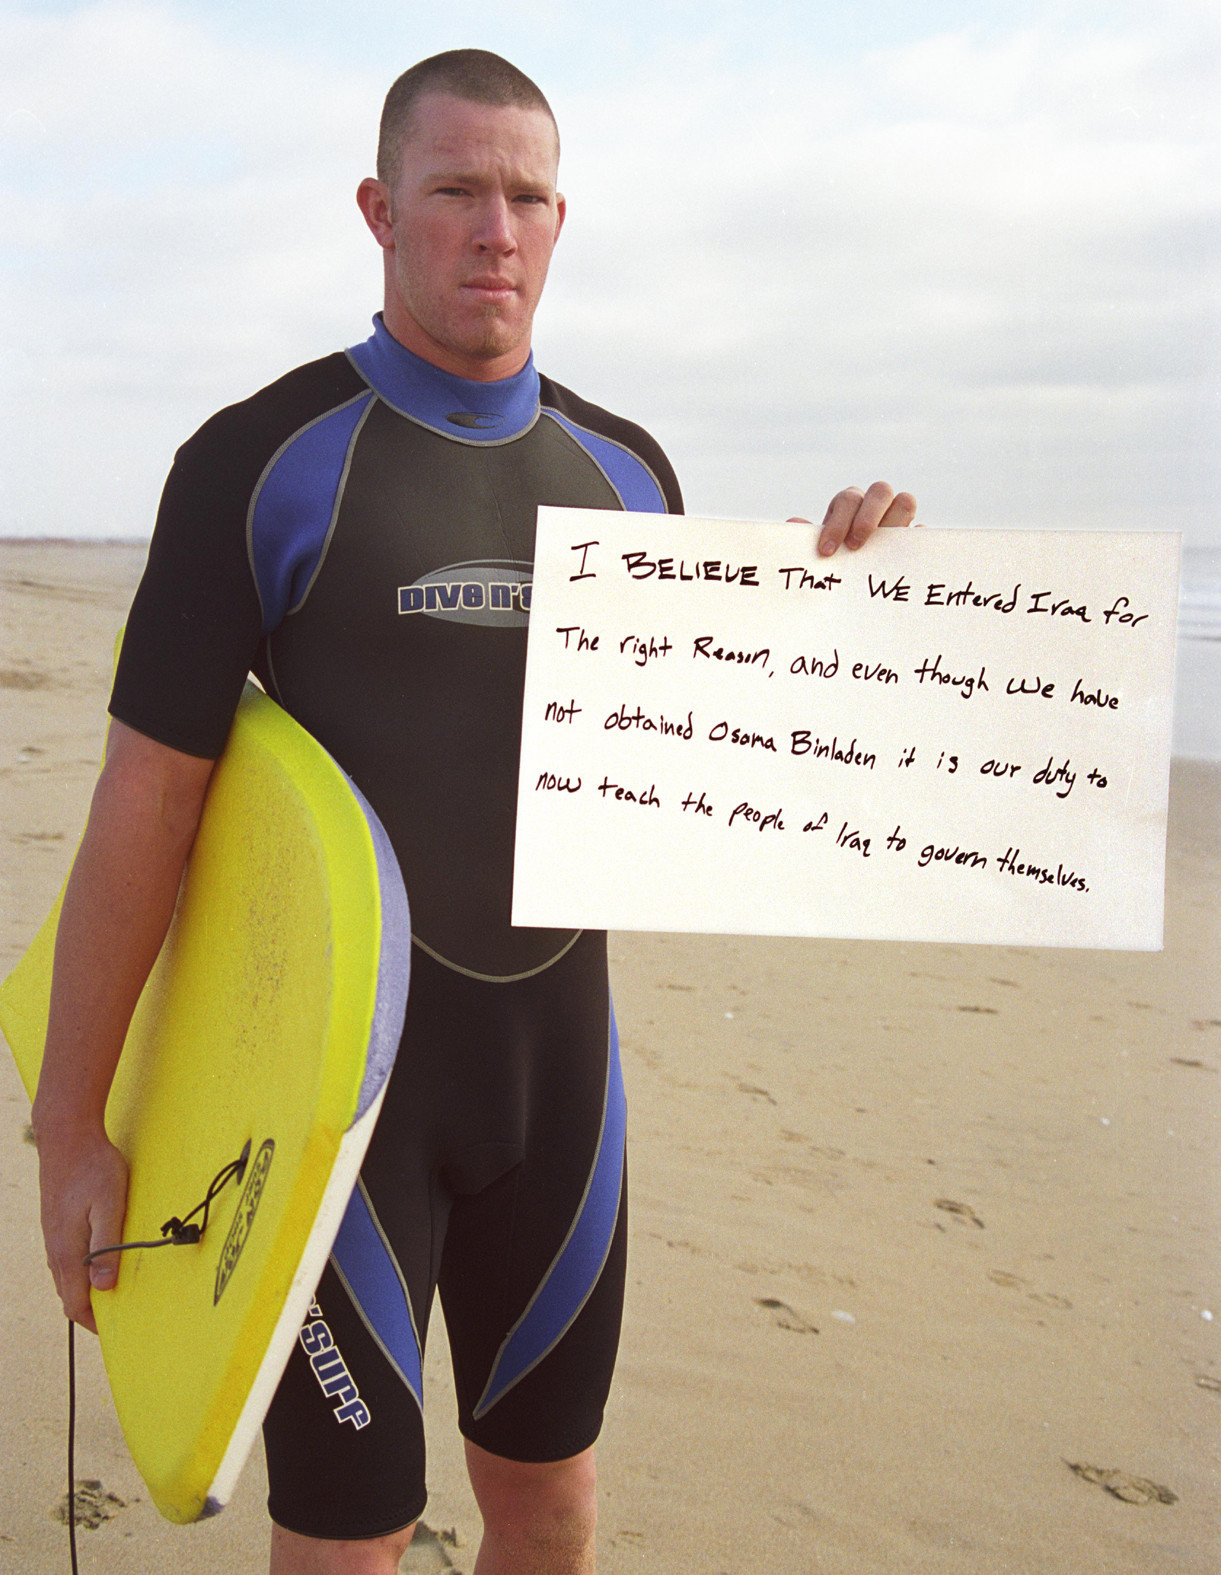 I BELIEVE That WE Entered Iraq for
The right Reason, and even though we have
not obtained Osama Binladen it is our duty to
now teach the people of Iraq to govern themselves.
DIVE n's
n'surf